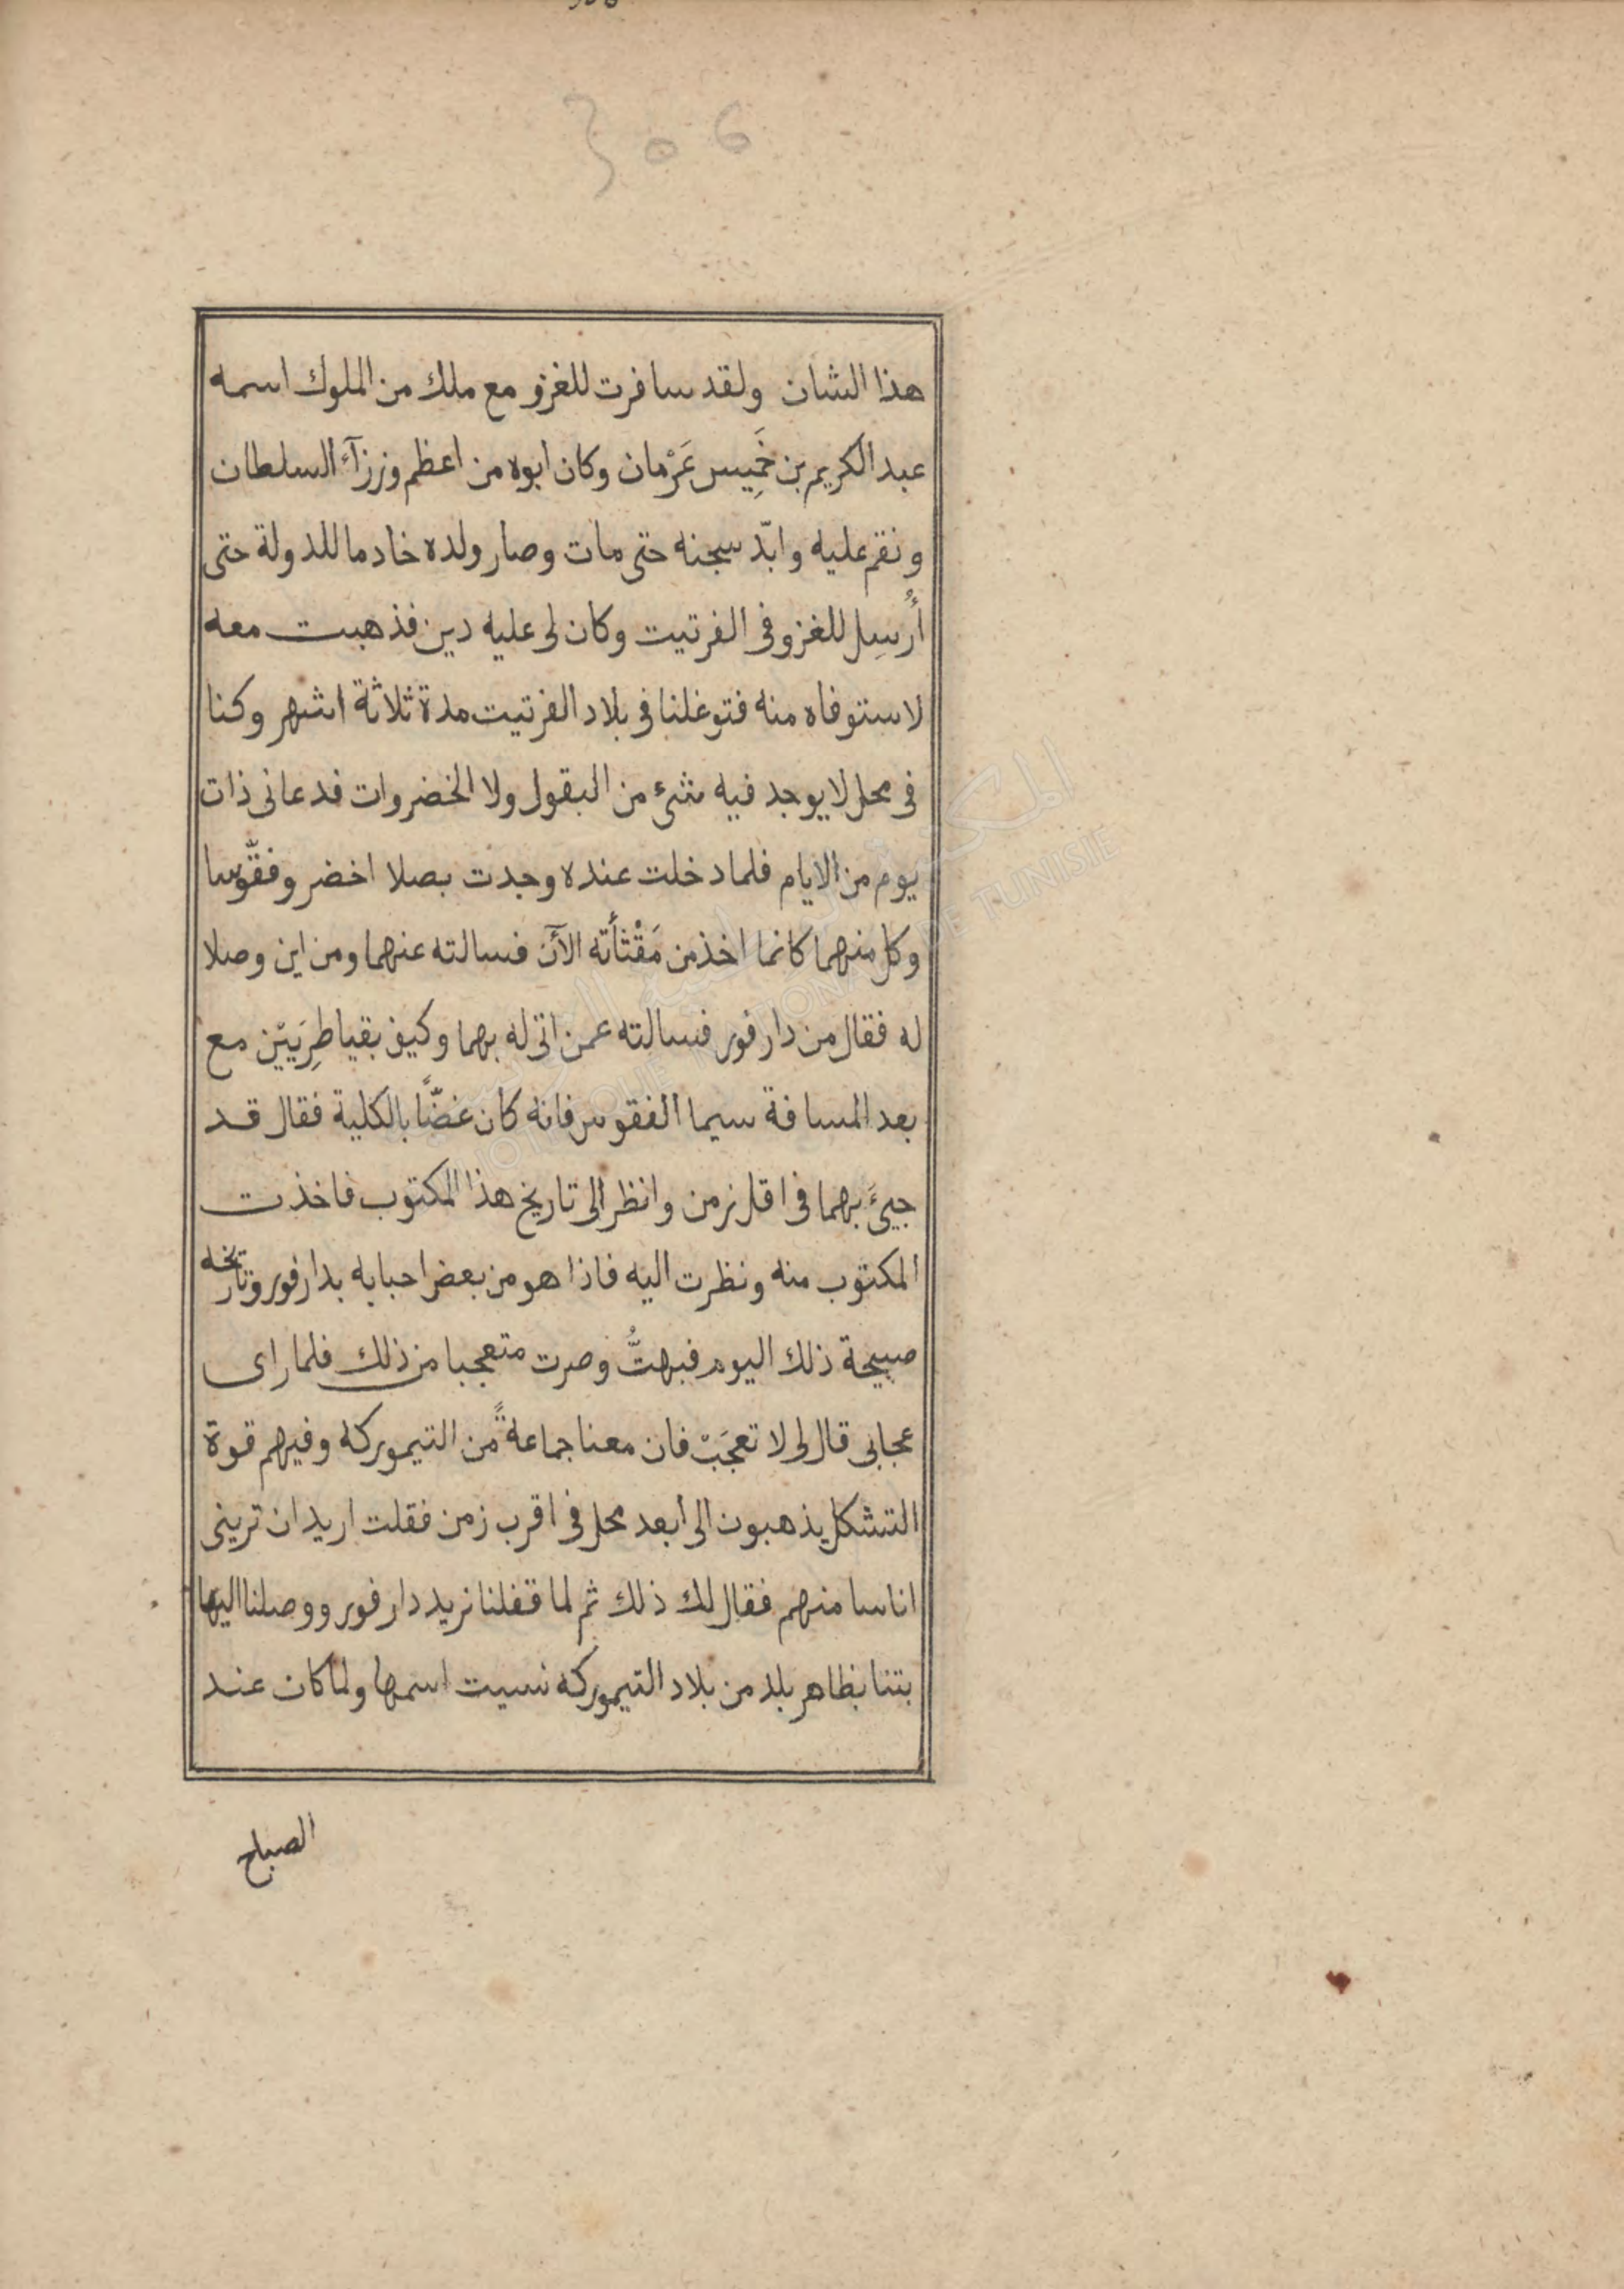 306
هذا الشان ولقد سافرت للغزو مع ملك من الملوك اسمه
عبد الكريم بن خَمِيس عَرْمان وكان ابوه من اعظم وزرآء السلطان
ونقم عليه وابّد سجنه حتى مات وصار ولده خادما للدولة حتى
أُرسِل للغزو فى الفرتيت وكان لى عليه دين فذهبت معه
لاستوفاه منه فتوغلنا فى بلاد الفرتيت مدة ثلاثة اشهر وكنا
فى محل لا يوجد فيه شىء من البقول ولا الخضروات فدعانى ذات
يوم من الايام فلما دخلت عنده وجدت بصلا اخضر وفقّوسا
وكل منهما كانما اخذ من مَقْثأته الآن فسالته عنهما ومن اين وصلا
له فقال من دارفور فسالته عمن اتى له بهما وكيف بقيا طِرِيَيْن مع
بعد المسافة سيما الفقوس فانه كان غضًّا بالكلية فقال قد
جيىءَ بهما فى اقل زمن وانظر الى تاريخ هذا المكتوب فاخذت
المكتوب منه ونظرت اليه فاذا هو من بعض احبابه بدارفور وتاريخه
صبيحة ذلك اليوم فبهتُّ وصرت متعجبا من ذلك فلما راى
عجابى قال لى لا تعجَبْ فان معنا جماعةً من التيموركه وفيهم قوة
التشكل يذهبون الى أبعد محل فى اقرب زمن فقلت اريد ان ترينى
اناسا منهم فقال لك ذلك ثم لما قفلنا نريد دارفور ووصلنا اليها
بتنا بظاهر بلد من بلاد التيموركه نسيت اسمها ولما كان عند
الصباح
المكتبة الوطنية التونسية
BIBLIOTHEQUE NATIONALE DE TUNISIE